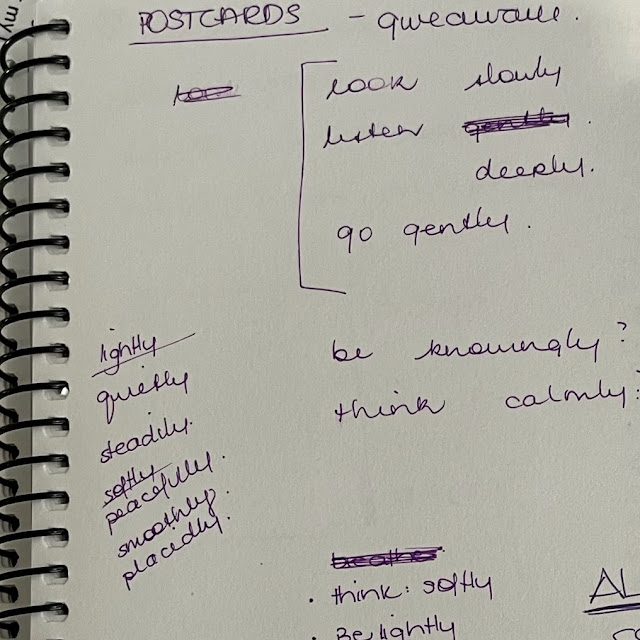 POSTCARDS - giveaway.
look slowly
listen gently.
deeply.
go gently.
be knowingly?
think calmly?
lightly
quietly
steadily.
softly
peacefully.
smoothly.
placedly.
breathe
• think: softly
• Be lightly
AL